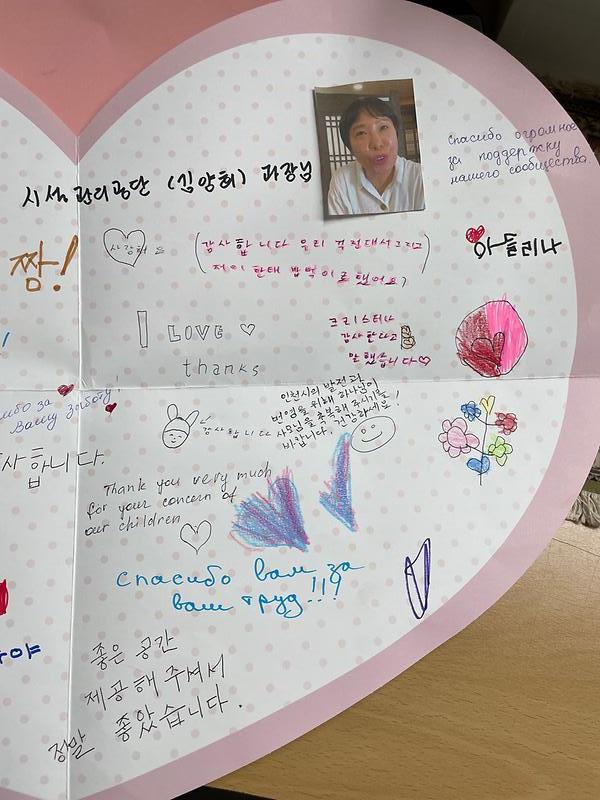 시설관리공단 (김양희) 과장님
Спасибо огромное
за поддержку
нашего сообщества.
짬!
사랑해요
(감사합니다 우리
저이 한태
아들리나
I LOVE
thanks
크리스티나
감사한다고
말했습니다♡
за
Вашу заботу!
인천시의 발전과
번영을 위해 하나님이
사모님을 축복해 주시기를
바랍니다. 건강하세요!
감사합니다
사합니다.
Thank you very much
for your concern of
our children
Спасибо вам за
ваш труд!!!
좋은 공간
제공해 주셔서
정말 좋았습니다.